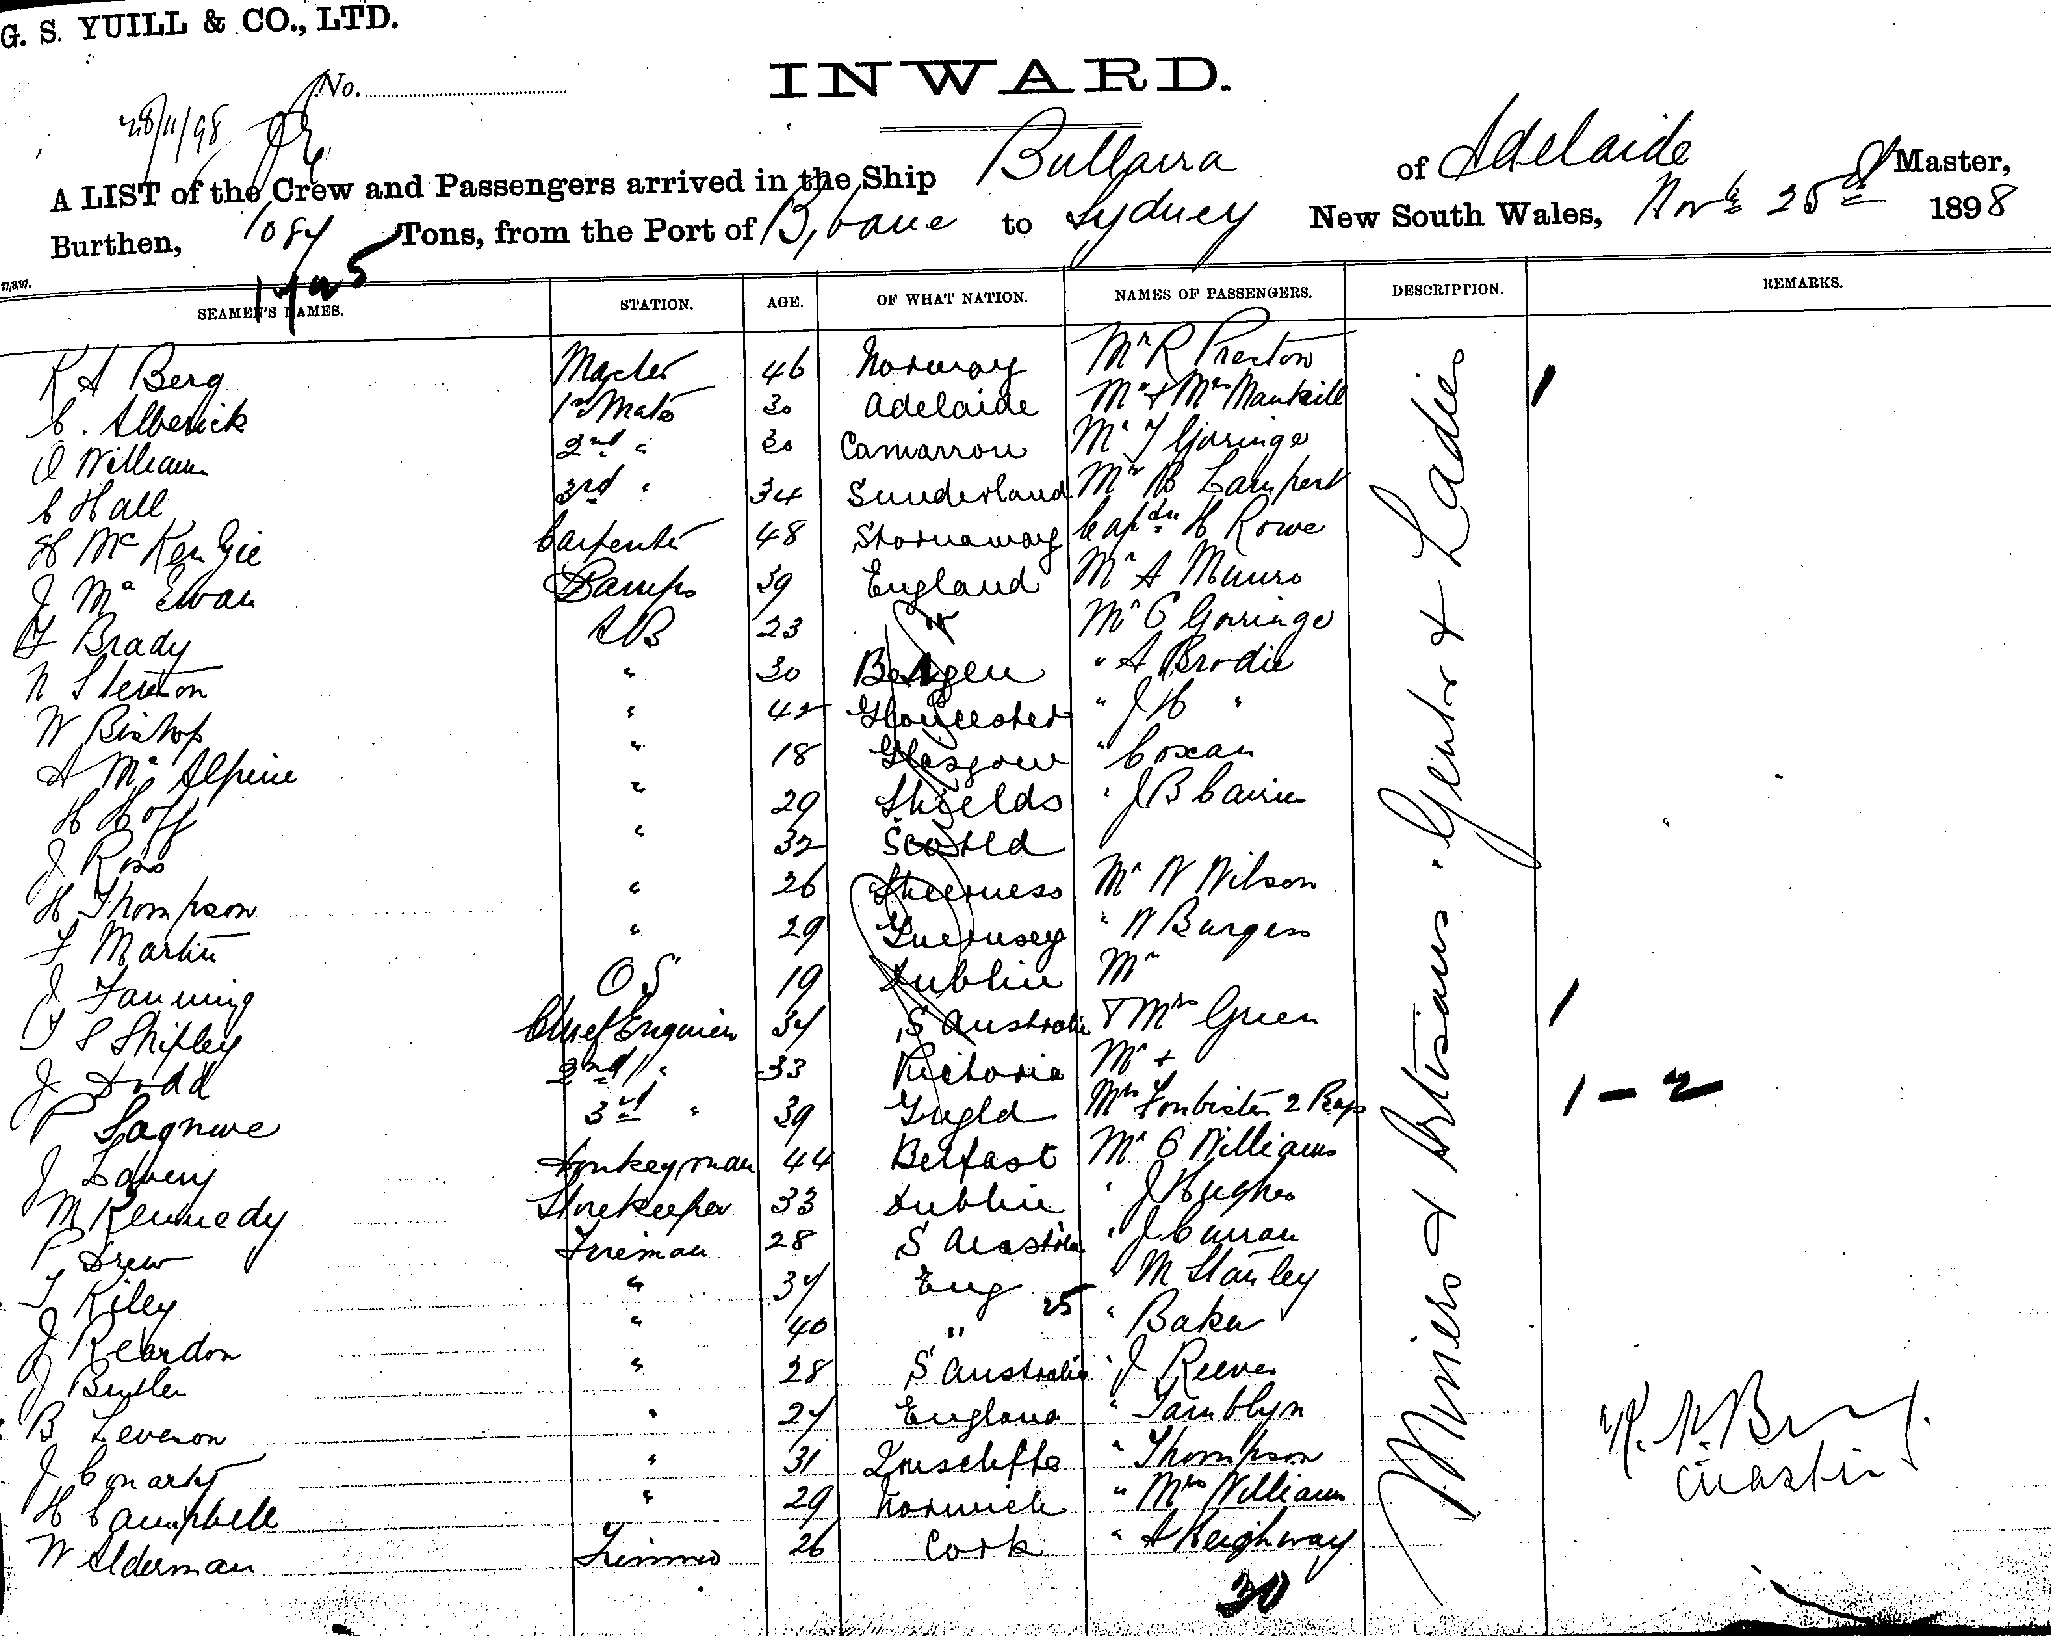 G. S. YUILL & CO., LTD.
No.
28/11/98
INWARD.
A LIST of the Crew and Passengers arrived in the Ship Bullarra of Adelaide Master,
Burthen, Tons, from the Port of B,bane to Sydney New South Wales, Novr 25th 1898
SEAMEN'S NAMES. STATION. AGE. OF WHAT NATION. NAMES OF PASSENGERS. DESCRIPTION. REMARKS.
K A Berg Master 46 Norway Mr R Preston
C. Alberick 1st Mate 30 Adelaide Mr & Mrs Mankill 1
O William 2nd " 30 Camarron Mr T Gorringe
C Hall 3rd " 34 Sunderland Mr B Lampert
H McKenzie Carpenter 48 Stornaway Captn H Rowe
J McEwan Lamps 39 England Mr A Munro
F Brady AB 23 " Mr C Gorringe
N Stenson " 30 Bergen " A Brodie
W Bishop " 42 Gloucester " J H "
A McAlpine " 18 Glasgow " Coxan
H Hoff " 29 Shields " J B Cairn
J Ross " 32 Scotld
H Thompson " 26 Sheerness Mr W Wilson
F Martin " 29 Guernsey " W Burgess
J Fanning OS 19 Dublin Mr
T S Shipley Chief Engineer 34 S Australia & Mrs Green 1
J Dodd 2nd " 33 Victoria Mr &
P 3rd " 39 Engld Mrs Forbister 2 1 - 2
J Lavery Donkeyman 44 Belfast Mr C Williams
M Kennedy Storekeeper 33 Dublin " J Hughes
P Drew Fireman 28 S Australia " J Curran
T Riley " 34 Eng " M Stanley
J Reardon " 40 " 25 " Baker
J Butler " 28 S Australia " J Reeves
B Leveson " 27 England " Tamblyn
J Conarty " 31 Queenscliffe " Thompson
H Campbell " 29 Norwich " Mrs William
W Alderman Trimmer 26 Cork " A Heighway
30
Miners & Artisans. Gents & Ladies
Master